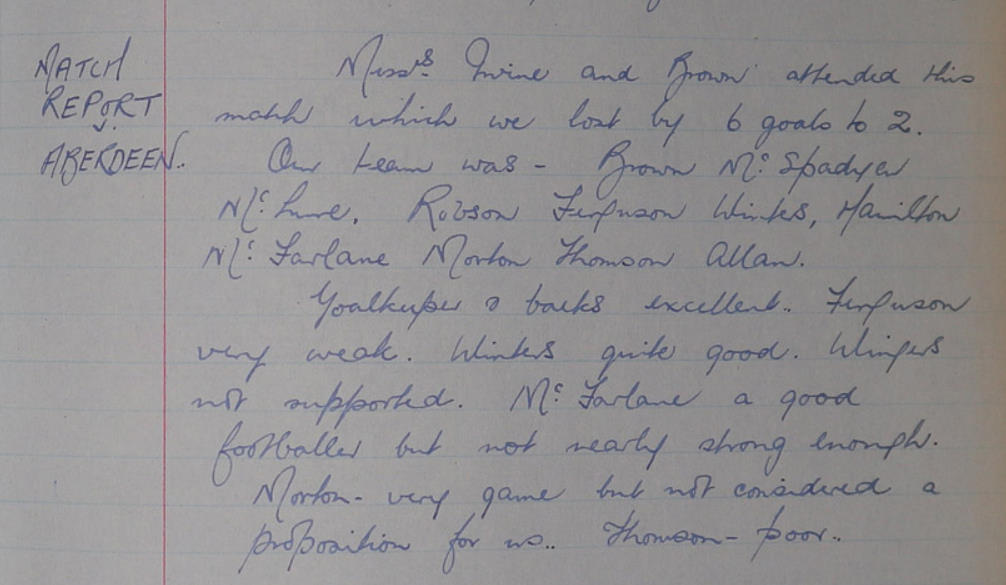 MATCH
REPORT
v.
ABERDEEN.
Messrs. Irvine and Brown attended this
match which we lost by 6 goals to 2.
Our team was - Brown Mc. Spadyen
Mc. Lure, Robson Ferguson Winters, Hamilton
Mc. Farlane Morton Thomson Allan.
Goalkeeper & backs excellent.. Ferguson
very weak. Winters quite good. Wingers
not supported. Mc. Farlane a good
footballer but not nearly strong enough.
Morton - very game but not considered a
proposition for us.. Thomson - poor..